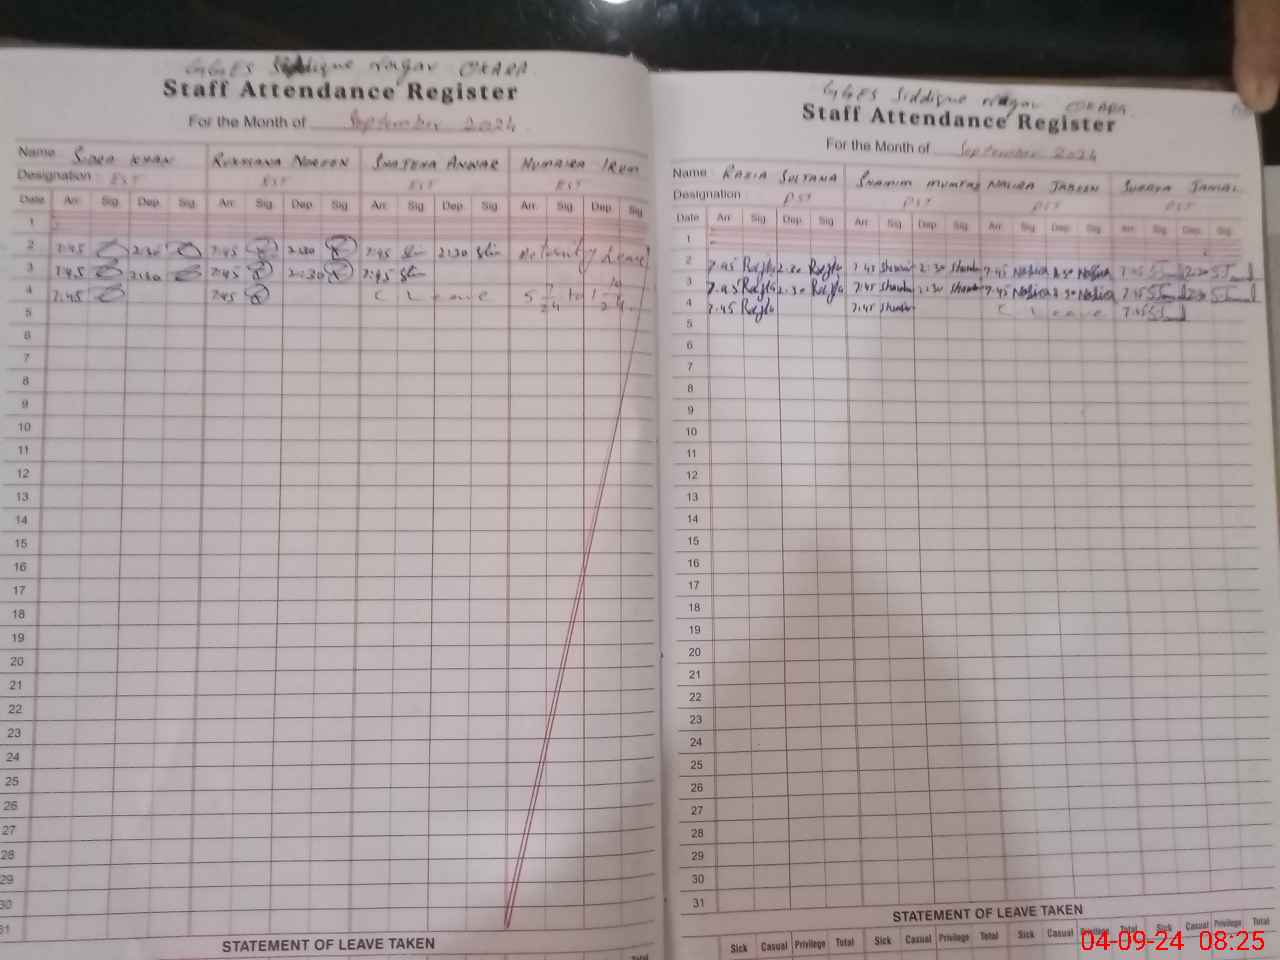 GGES Siddique Nagar OKARA
Staff Attendance Register
For the Month of September 2024
Name SIDRA KHAN RUKHSANA NOREEN SHAFENA ANWAR HUMAIRA IRUM
Designation EST EST EST EST
Date Arr. Sig. Dep. Sig. Arr. Sig. Dep. Sig. Arr. Sig. Dep. Sig. Arr. Sig. Dep. Sig.
1
2 7:45 2:30 7:45 2:30 7:45 2:30 Maternity Leave
3 7:45 2:30 7:45 2:30 7:45
4 7:45 7:45 C Leave
5
6
7
8
9
10
11
12
13
14
15
16
17
18
19
20
21
22
23
24
25
26
27
28
29
30
31
STATEMENT OF LEAVE TAKEN
Total
GGES Siddique Nagar OKARA
Staff Attendance Register
For the Month of September 2024
Name RAZIA SULTANA SHAMIM MUMTAZ NAZIRA JABEEN SURAYA JAMAL
Designation PST PST PST PST
Date Arr. Sig. Dep. Sig. Arr. Sig. Dep. Sig. Arr. Sig. Dep. Sig. Arr. Sig. Dep. Sig.
1
2 7:45 2:30 7:45 2:30 7:45 2:30 7:45 2:30
3 7:45 2:30 7:45 2:30 7:45 2:30 7:45 2:30
4 7:45 7:45 C Leave 7:45
5
6
7
8
9
10
11
12
13
14
15
16
17
18
19
20
21
22
23
24
25
26
27
28
29
30
31
STATEMENT OF LEAVE TAKEN
Sick Casual Privilege Total Sick Casual Privilege Total Sick Casual Privilege Total Sick Casual Privilege Total
04-09-24 08:25